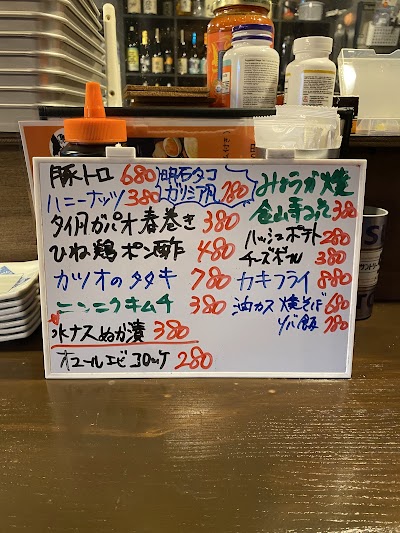 豚トロ 680
ハニーナッツ 380
タイ風ガパオ春巻き 380
ひね鶏ポン酢 480
カツオのタタキ 780
ニンニクキムチ 380
水ナスぬか漬 380
オマールエビコロッケ 280
明石タコ
ガリシア風 780
みょうが焼
金山寺みそ 380
ハッシュポテト 280
チーズボール 380
カキフライ 880
油カス焼そば 680
ソバ飯 780